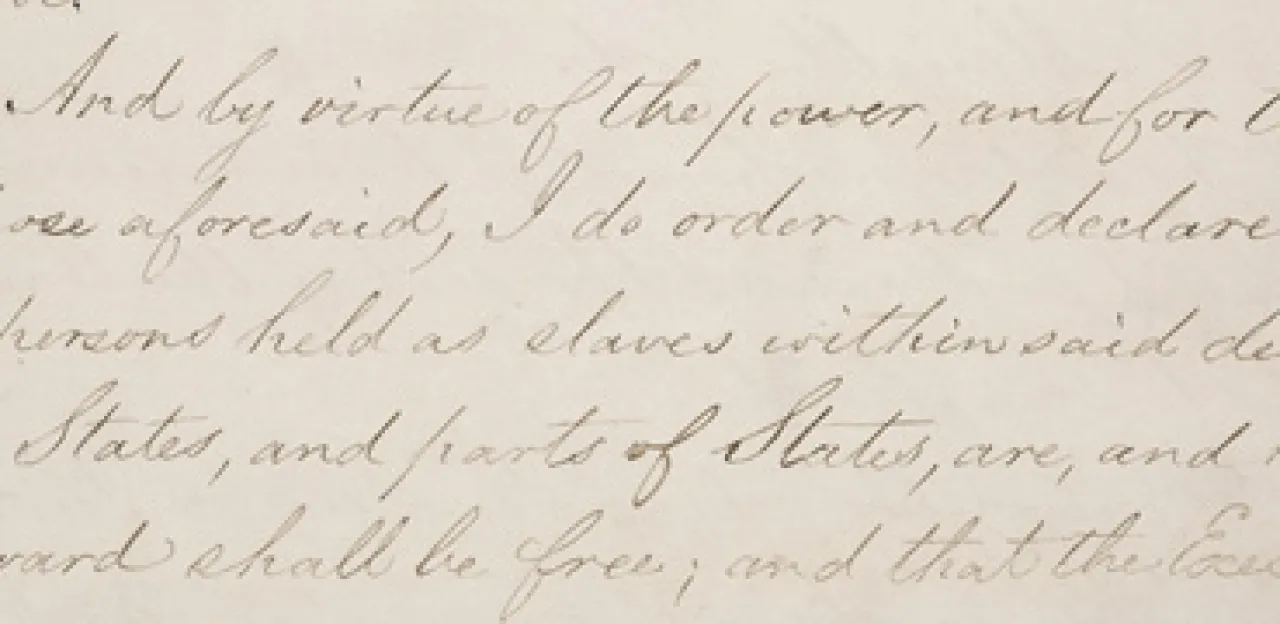 And by virtue of the power, and for t
ose aforesaid, I do order and declare
persons held as slaves within said de
States, and parts of States, are, and
ward shall be free; and that the Exec